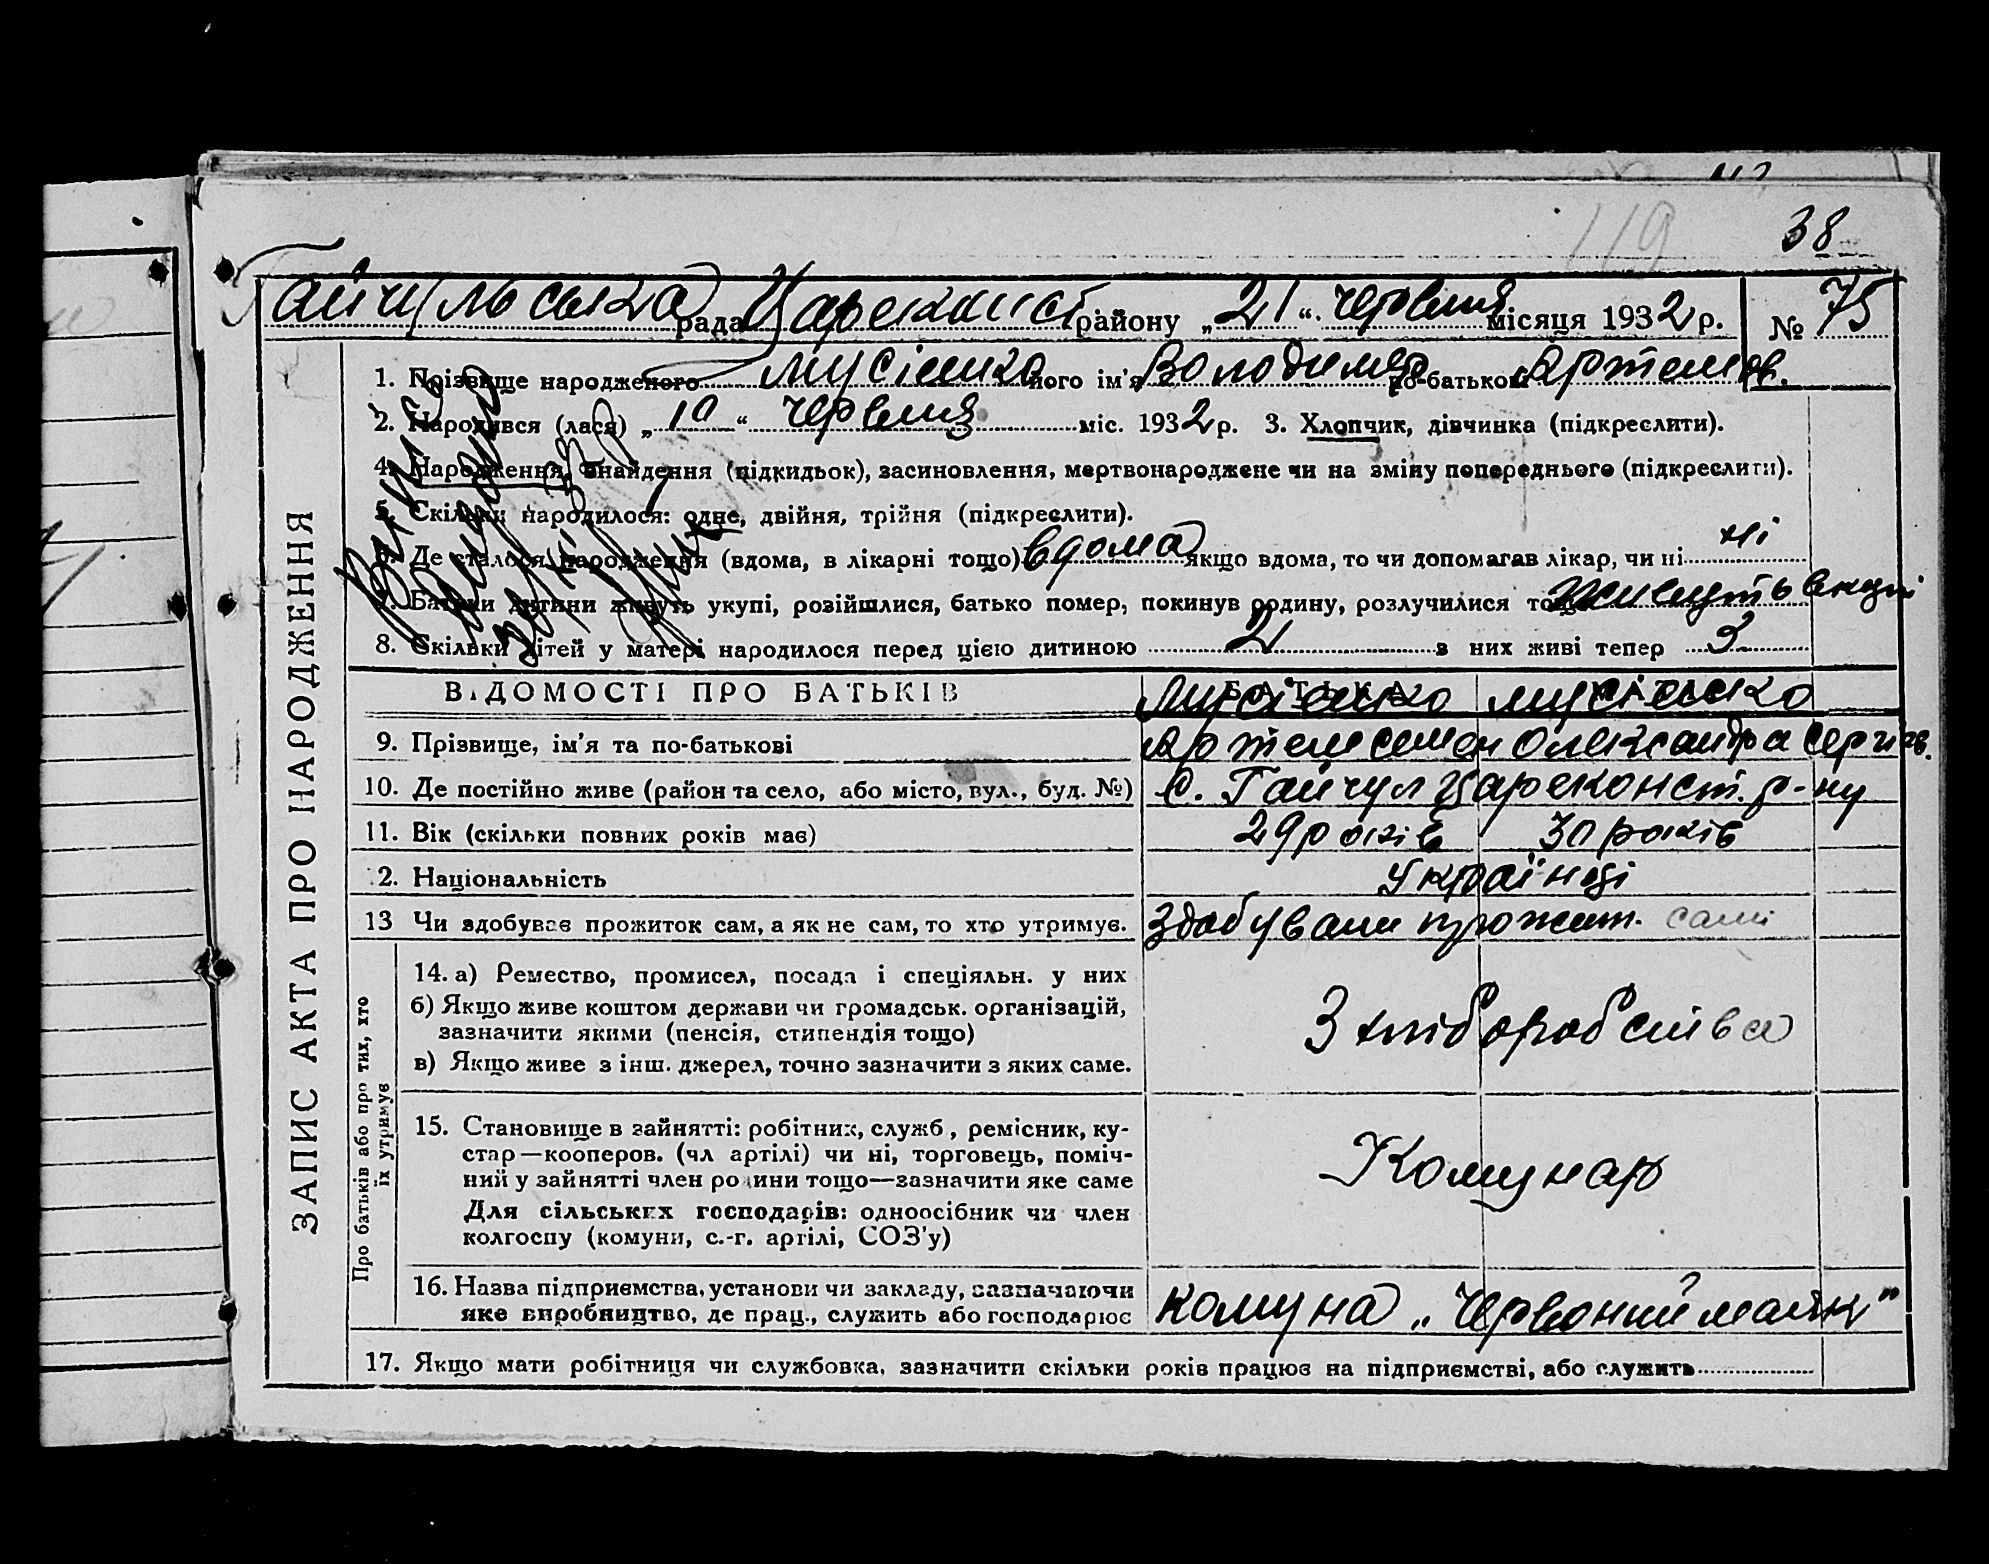 119
38
Гайчульська рада Царекопст. району „21“ червня місяця 1932 р. № 75
1. Прізвище народженого Мусієнко його ім'я Володимир по-батькові Артемов.
2. Народився (лася) „10“ червня міс. 1932 р. 3. Хлопчик, дівчинка (підкреслити).
4. Народження, знайдення (підкидьок), засиновлення, мертвонароджене чи на зміну попереднього (підкреслити).
5. Скільки народилося: одне, двійня, трійня (підкреслити).
6. Де сталося народження (вдома, в лікарні тощо) вдома якщо вдома, то чи допомагав лікар, чи ні ні
7. Батьки дитини живуть укупі, розійшлися, батько помер, покинув родину, розлучилися тощо живуть вкупі
8. Скільки дітей у матері народилося перед цією дитиною в них живі тепер 3
ВІДОМОСТІ ПРО БАТЬКІВ БАТЬКА МАТІР
Мусієнко Мусієнко
9. Прізвище, ім'я та по-батькові Артем Семен Олександра Сергіев.
10. Де постійно живе (район та село, або місто, вул., буд. №) С. Гайчул Цареконст. р-ну
11. Вік (скільки повних років має) 29 років 30 років
2. Національність Українці
13 Чи здобуває прожиток сам, а як не сам, то хто утримує. здобували прожит. сами
14. а) Ремество, промисел, посада і спеціяльн. у них
б) Якщо живе коштом держави чи громадськ. організацій,
зазначити якими (пенсія, стипендія тощо)
З хліборобства
в) Якщо живе з інш. джерел, точно зазначити з яких саме.
15. Становище в зайнятті: робітник, служб, ремісник, ку-
стар—кооперов. (чл артілі) чи ні, торговець, поміч-
ний у зайнятті член родини тощо—зазначити яке саме
Комунар
Для сільських господарів: одноосібник чи член
колгоспу (комуни, с.-г. артілі, СОЗ'у)
16. Назва підприємства, установи чи закладу, зазначаючи
яке виробництво, де прац., служить або господарює комуна „Червоний маяк"
17. Якщо мати робітниця чи службовка, зазначити скільки років працює на підприємстві, або служить
ЗАПИС АКТА ПРО НАРОДЖЕННЯ
Про батьків або про тих, хто
їх утримує